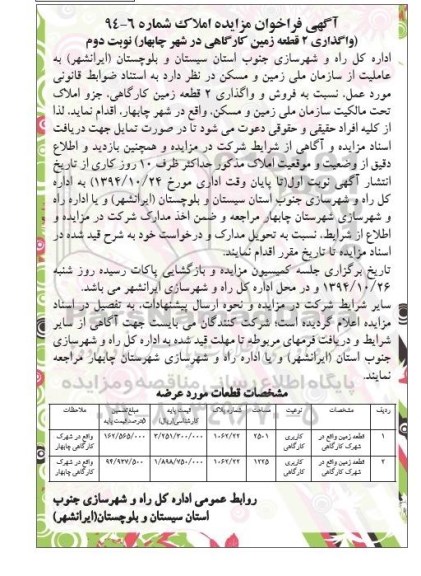 آگهی فراخوان مزایده املاک شماره ۶-۹۴
(واگذاری ۲ قطعه زمین کارگاهی در شهر چابهار) نوبت دوم
اداره کل راه و شهرسازی جنوب استان سیستان و بلوچستان (ایرانشهر) به
عاملیت از سازمان ملی زمین و مسکن در نظر دارد به استناد ضوابط قانونی
مورد عمل، نسبت به فروش و واگذاری ۲ قطعه زمین کارگاهی، جزو املاک
تحت مالکیت سازمان ملی زمین و مسکن، واقع در شهر چابهار، اقدام نماید. لذا
از کلیه افراد حقیقی و حقوقی دعوت می شود تا در صورت تمایل جهت دریافت
اسناد مزایده و آگاهی از شرایط شرکت در مزایده و همچنین بازدید و اطلاع
دقیق از وضعیت و موقعیت املاک مذکور حداکثر ظرف ۱۰ روز کاری از تاریخ
انتشار آگهی نوبت اول(تا پایان وقت اداری مورخ ۱۳۹۴/۱۰/۲۴) به اداره
کل راه و شهرسازی جنوب استان سیستان و بلوچستان (ایرانشهر) و یا اداره راه
و شهرسازی شهرستان چابهار مراجعه و ضمن اخذ مدارک شرکت در مزایده و
اطلاع از شرایط، نسبت به تحویل مدارک و درخواست خود به شرح قید شده در
اسناد مزایده تا تاریخ مقرر اقدام نمایند.
تاریخ برگزاری جلسه کمیسیون مزایده و بازگشایی پاکات رسیده روز شنبه
۱۳۹۴/۱۰/۲۶ و در محل اداره کل راه و شهرسازی ایرانشهر می باشد.
سایر شرایط شرکت در مزایده و نحوه ارسال پیشنهادات، به تفصیل در اسناد
مزایده اعلام گردیده است؛ شرکت کنندگان می بایست جهت آگاهی از سایر
شرایط و دریافت فرمهای مربوطه تا مهلت قید شده به اداره کل راه و شهرسازی
جنوب استان (ایرانشهر) و یا اداره راه و شهرسازی شهرستان چابهار مراجعه
نمایند.
پایگاه اطلاع رسانی مناقصه و مزایده
مشخصات قطعات مورد عرضه
ردیف مشخصات نوعیت مساحت شماره پلاک قیمت پایه کارشناسی(ریال) مبلغ تضمین ۵درصد قیمت پایه ملاحظات
۱ قطعه زمین واقع در شهرک کارگاهی کاربری کارگاهی ۲۵۰۱ ۱۰۶۲/۲۲ ۳/۲۵۱/۳۰۰/۰۰۰ ۱۶۲/۵۶۵/۰۰۰ واقع در شهرک کارگاهی چابهار
۲ قطعه زمین واقع در شهرک کارگاهی کاربری کارگاهی ۱۲۲۵ ۱۰۶۲/۲۲ ۱/۸۹۸/۷۵۰/۰۰۰ ۹۴/۹۳۷/۵۰۰ واقع در شهرک کارگاهی چابهار
روابط عمومی اداره کل راه و شهرسازی جنوب
استان سیستان و بلوچستان(ایرانشهر)